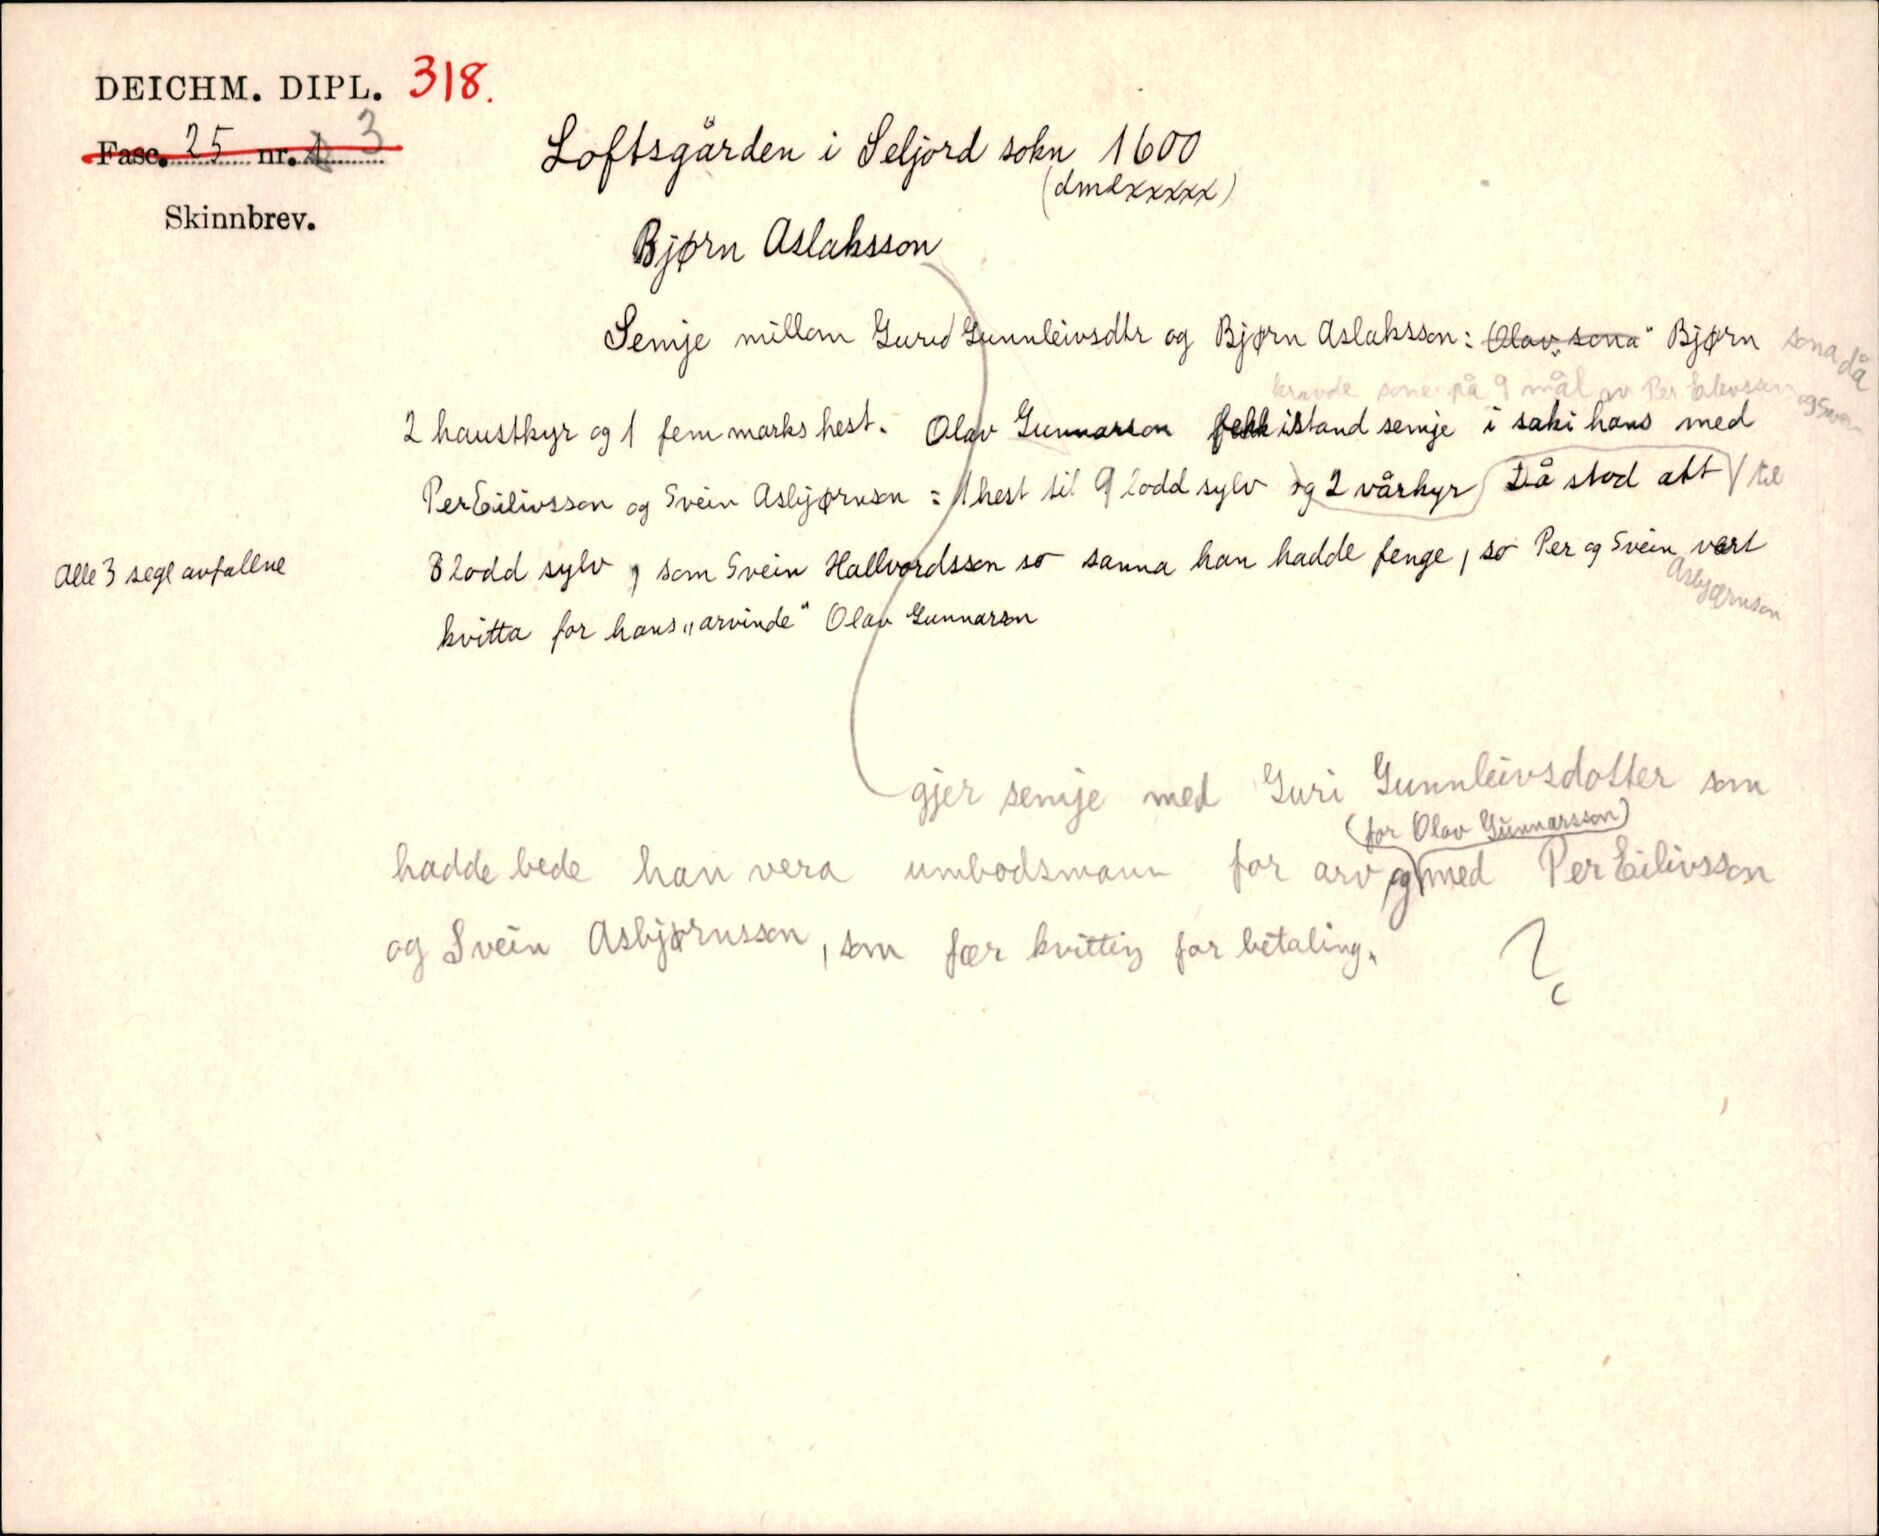 DEICHM. DIPL. 318.
Fasc. 25 nr. 3
Skinnbrev.
Loftsgården i Seljord sokn 1600
(dmdxxxxx)
Bjørn Aslaksson
Semje millom Gurid Gunnleivsdtr og Bjørn Aslaksson: Olav „sona“ Bjørn sona då
kravde sone på 9 mål av Per Eilivsson og Svein
2 haustkyr og 1 fem marks hest. Olav Gunnarson fekk istand semje i saki hans med
Per Eilivsson og Svein Asbjørnson = 1 hest til 9 lodd sylv og 2 vårkyr Då stod att til
Alle 3 segl avfallne
8 lodd sylv, som Svein Hallvordsson so sanna han hadde fenge, so Per og Svein vart
Asbjørnson
kvitta for hans „arvinde“ Olav Gunnarson
gjer semje med Guri Gunnleivsdotter som
(for Olav Gunnarsson)
hadde bede han vera umbodsmann for arv og med Per Eilivsson
og Svein Asbjørnsson, som fær kvittig for betaling.
?